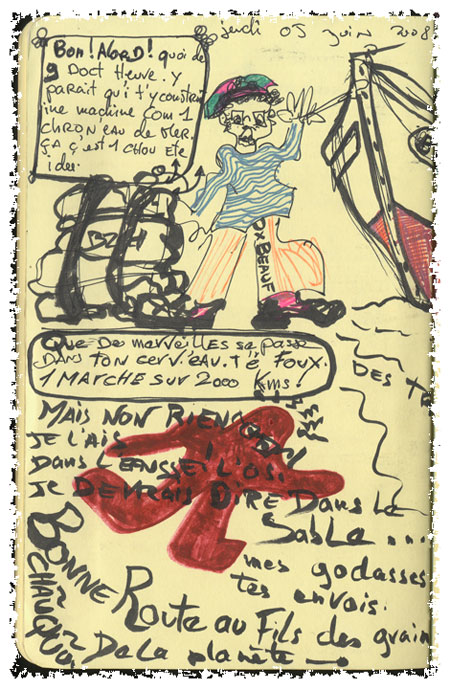 jeudi 05 juin 2008
Bon! ALORD! quoi de
9 Doct Heuve. y
parait qu'i t'y construi
ine machine com 1
CHRON eau de Mer.
ÇA ç'est 1 chou ete
idée.
BZH
DX BEAUF
Que De merveilles se passe
DANS TON cerv'eau. T'é Foux.
1 MARCHE SUR 2000 Kms!
DES TE
MAIS NON RIEN
JE L'AIS
Dans L'EANSSE! L'OS.
Je DEVRAIS DIRE Dans Le
SabLe...
mes godasses
Tes envois.
BONNE
Route au Fils des grain
De La planète